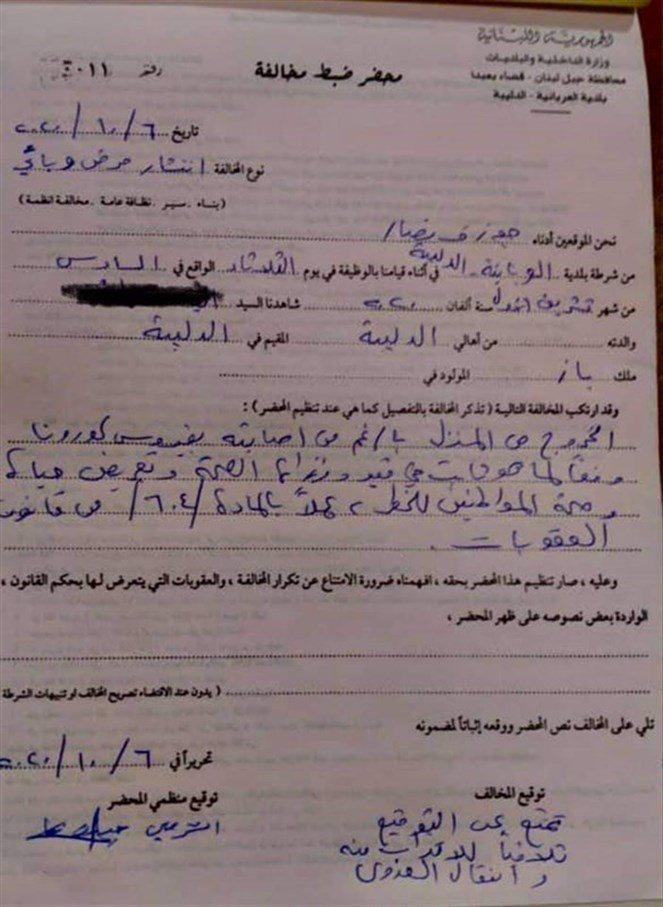 الجمهورية اللبنانية
وزارة الداخلية والبلديات
محافظة جبل لبنان - قضاء بعبدا
بلدية العربانية - الدليبة
محضر ضبط مخالفة
رقم ٠١١
تاريخ ٦/١٠/٢٠٢٠
نوع المخالفة انتشار مرض وبائي
(بناء . سير . نظافة عامة . مخالفة انظمة)
نحن الموقعين أدناه جوزف
من شرطة بلدية العربانية الدليبة في أثناء قيامنا بالوظيفة في يوم الثلاثاء الواقع في السادس
من شهر تشرين الاول سنة ألفان ٢٠٢٠ شاهدنا السيد
والدته من أهالي الدليبة المقيم في الدليبة
ملك باز المولود في
وقد ارتكب المخالفة التالية (تذكر المخالفة بالتفصيل كما هي عند تنظيم المحضر) :
الخروج من المنزل بالرغم من اصابته بفيروس كورونا
وفقاً لما هو ثابت في قيود وزارة الصحة وتعريض حياة
وصحة المواطنين للخطر ، عملاً بالمادة /٦٠٤/ من قانون
العقوبات .
وعليه ، صار تنظيم هذا المحضر بحقه ، افهمناه ضرورة الامتناع عن تكرار المخالفة ، والعقوبات التي يتعرض لها بحكم القانون ،
الواردة بعض نصوصه على ظهر المحضر ،
( يدون عند الاقتضاء تصريح المخالف او تنبيهات الشرطة
تلي على المخالف نص المحضر ووقعه إثباتاً لمضمونه
تحريراً في ٦/١٠/٢٠٢٠
توقيع المخالف
تمنع عن التوقيع
تلافياً للاقتراب منه
وانتقال العدوى
توقيع منظمي المحضر
الشرطي